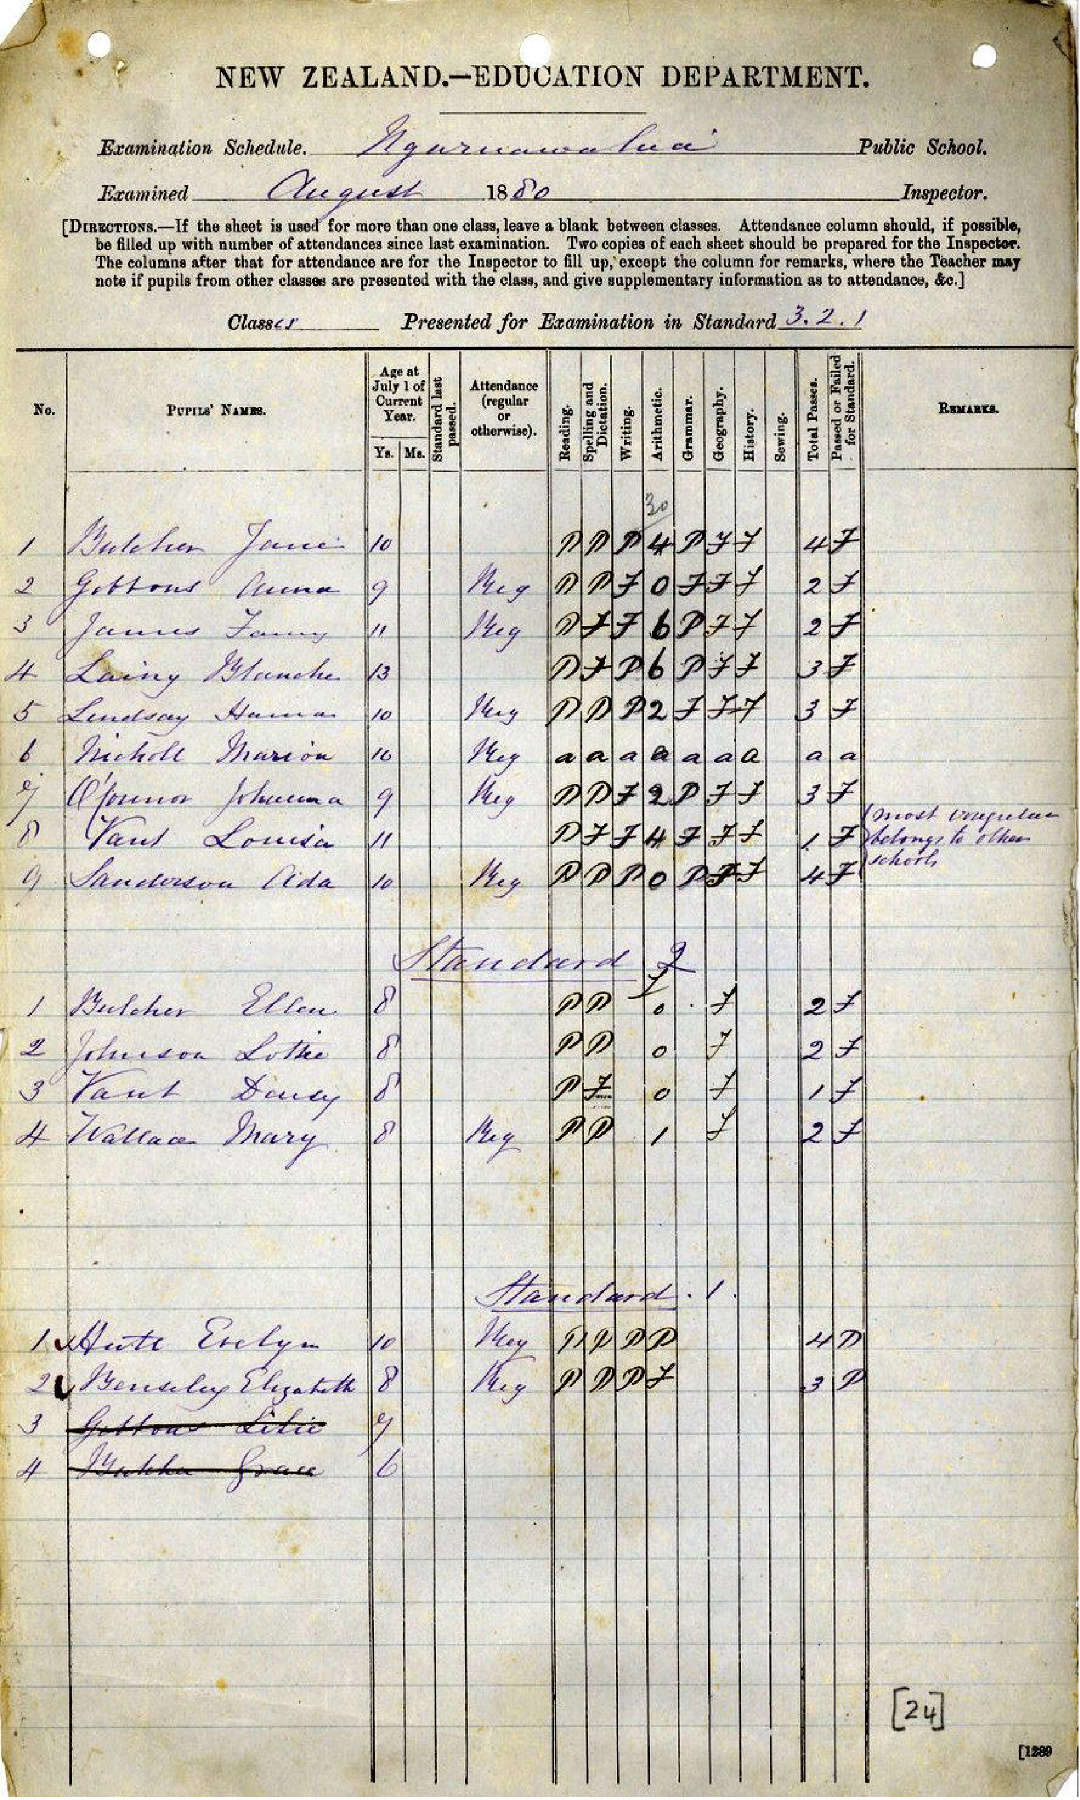 NEW ZEALAND.—EDUCATION DEPARTMENT.
Examination Schedule. Ngaruawahia Public School.
Examined August 1880 Inspector.
[DIRECTIONS.—If the sheet is used for more than one class, leave a blank between classes. Attendance column should, if possible,
be filled up with number of attendances since last examination. Two copies of each sheet should be prepared for the Inspector.
The columns after that for attendance are for the Inspector to fill up, except the column for remarks, where the Teacher may
note if pupils from other classes are presented with the class, and give supplementary information as to attendance, &c.]
Classes Presented for Examination in Standard 3.2.1
No. PUPILS' NAMES. Age at July 1 of Current Year. Ys. Ms. Standard last passed. Attendance (regular or otherwise). Reading. Spelling and Dictation. Writing. Arithmetic. Grammar. Geography. History. Sewing. Total Passes. Passed or Failed for Standard. REMARKS.
30
1 Butcher Jane 10 P P P 4 P F F 4 F
2 Gibbons Anna 9 Reg P P F 0 F F F 2 F
3 James Fanny 11 Reg P F F 6 P F F 2 F
4 Laing Blanche 13 P F P 6 P F F 3 F
5 Lindsay Hanna 10 Reg P P P 2 F F F 3 F
6 Nicholl Marion 10 Reg a a a a a a a a a
7 O'Connor Johanna 9 Reg P P F 2 P F F 3 F
8 Vant Louisa 11 P F F 4 F F F 1 F (most irregular
belongs to other
schools
9 Sanderson Ada 10 Reg P P P 0 P F F 4 F
Standard 2
1 Butcher Ellen 8 P P 0 F 2 F
2 Johnson Lottie 8 P P 0 F 2 F
3 Vant Daisy 8 P F 0 F 1 F
4 Wallace Mary 8 Reg P P 1 F 2 F
Standard . 1 .
1 Hutt Evelyn 10 Reg P P P P 4 P
2 Elizabeth 8 Reg P P P F 3 P
3 Gibbons Lilie 7
4 Butcher Grace 6
[24]
[1289